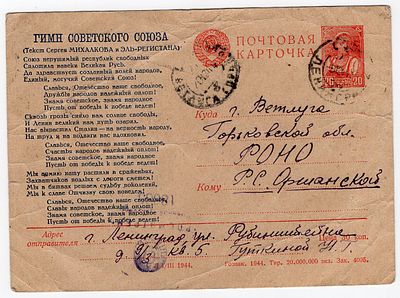 ГИМН СОВЕТСКОГО СОЮЗА
(Текст Сергея МИХАЛКОВА и ЭЛЬ-РЕГИСТАНА)
Союз нерушимый республик свободных
Сплотила навеки Великая Русь.
Да здравствует созданный волей народов,
Единый, могучий Советский Союз!
Славься, Отечество наше свободное,
Дружбы народов надёжный оплот!
Знамя советское, знамя народное
Пусть от победы к победе ведёт!
Сквозь грозы сияло нам солнце свободы,
И Ленин великий нам путь озарил.
Нас вырастил Сталин — на верность народу,
На труд и на подвиги нас вдохновил.
Славься, Отечество наше свободное,
Счастья народов надёжный оплот!
Знамя советское, знамя народное
Пусть от победы к победе ведёт!
Мы армию нашу растили в сраженьях,
Захватчиков подлых с дороги сметём!
Мы в битвах решаем судьбу поколений,
Мы к славе Отчизну свою поведём!
Славься, Отечество наше свободное,
Славы народов надёжный оплот!
Знамя советское, знамя народное
Пусть от победы к победе ведёт!
ПОЧТОВАЯ
КАРТОЧКА
20
Куда г. Ветлуга
Горьковской обл.
РОНО
Кому Р.С. Оршанской
Адрес
отправителя г. Ленинград ул. Рубинштейна
д. 9/3 кв. 5.
1944. Гознак. 1944. Тир. 20.000.000 экз. Зак. 4005.